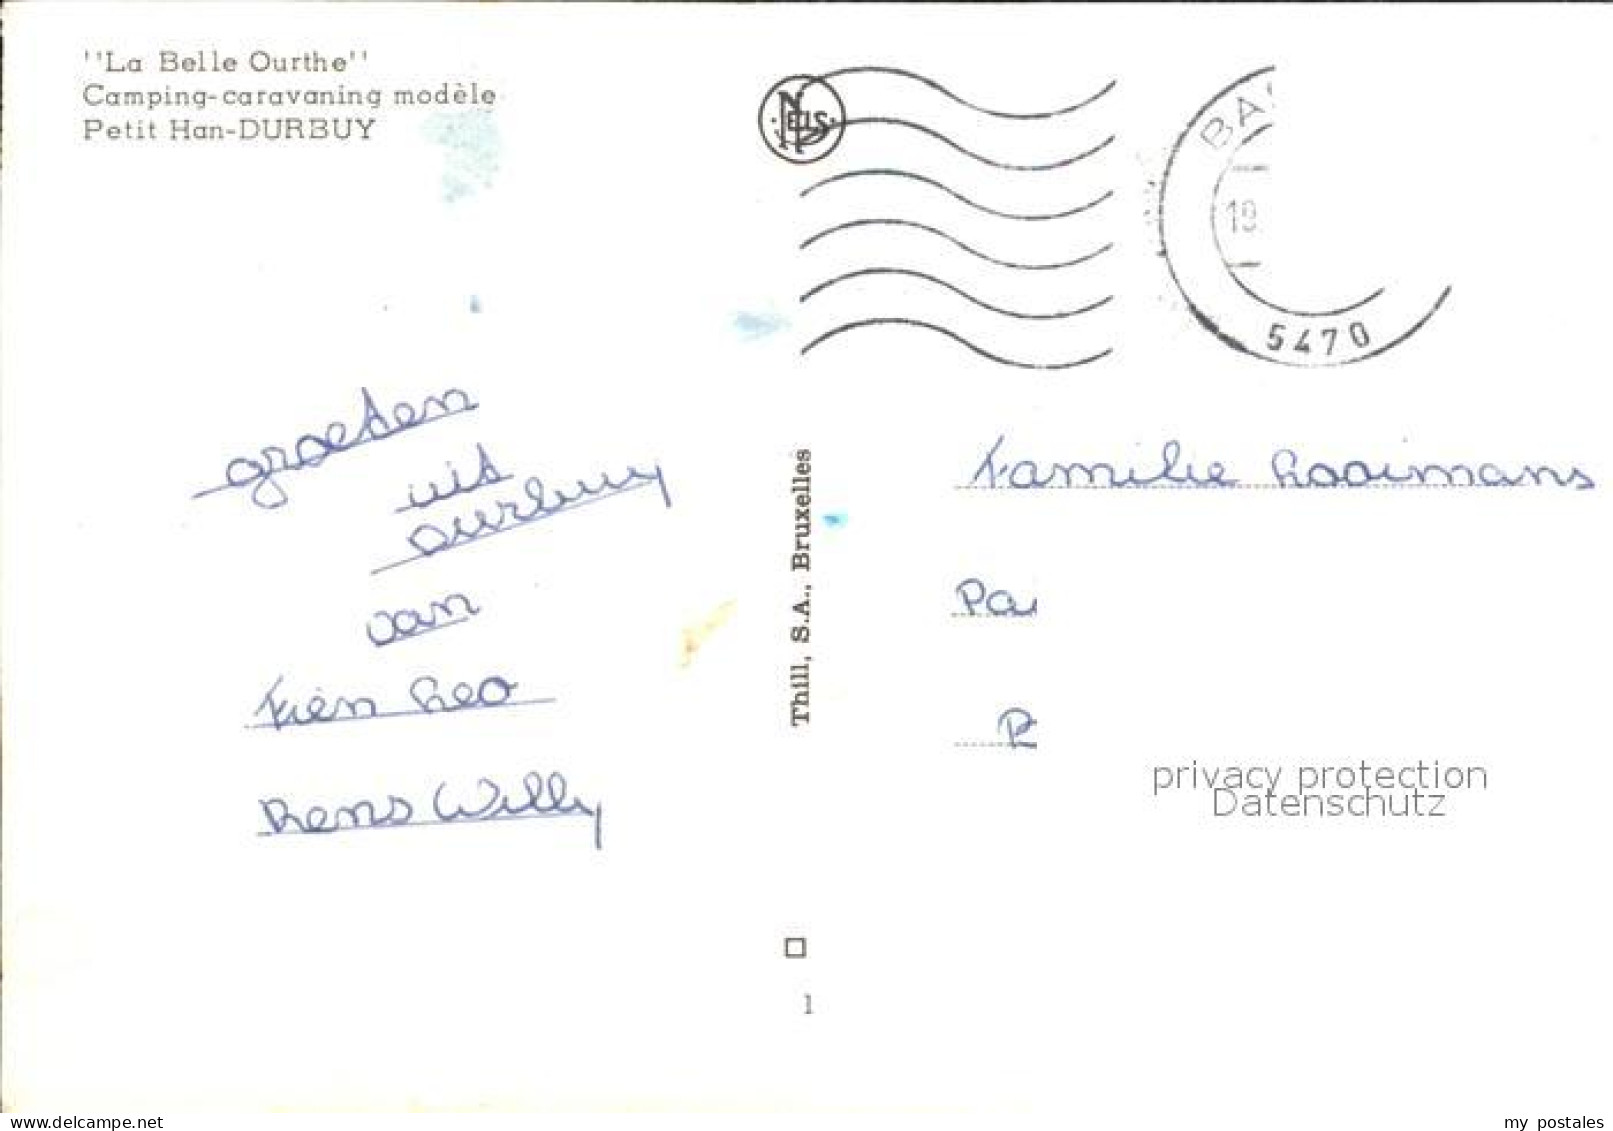 ''La Belle Ourthe''
Camping-caravaning modèle
Petit Han-DURBUY
NELS
BAS
18
5470
groeten
uit
ourbuy
van
Fien Leo
Rens Willy
Thill, S.A., Bruxelles
1
Familie Looimans
Pa
P
privacy protection
Datenschutz
www.delcampe.net
my postales